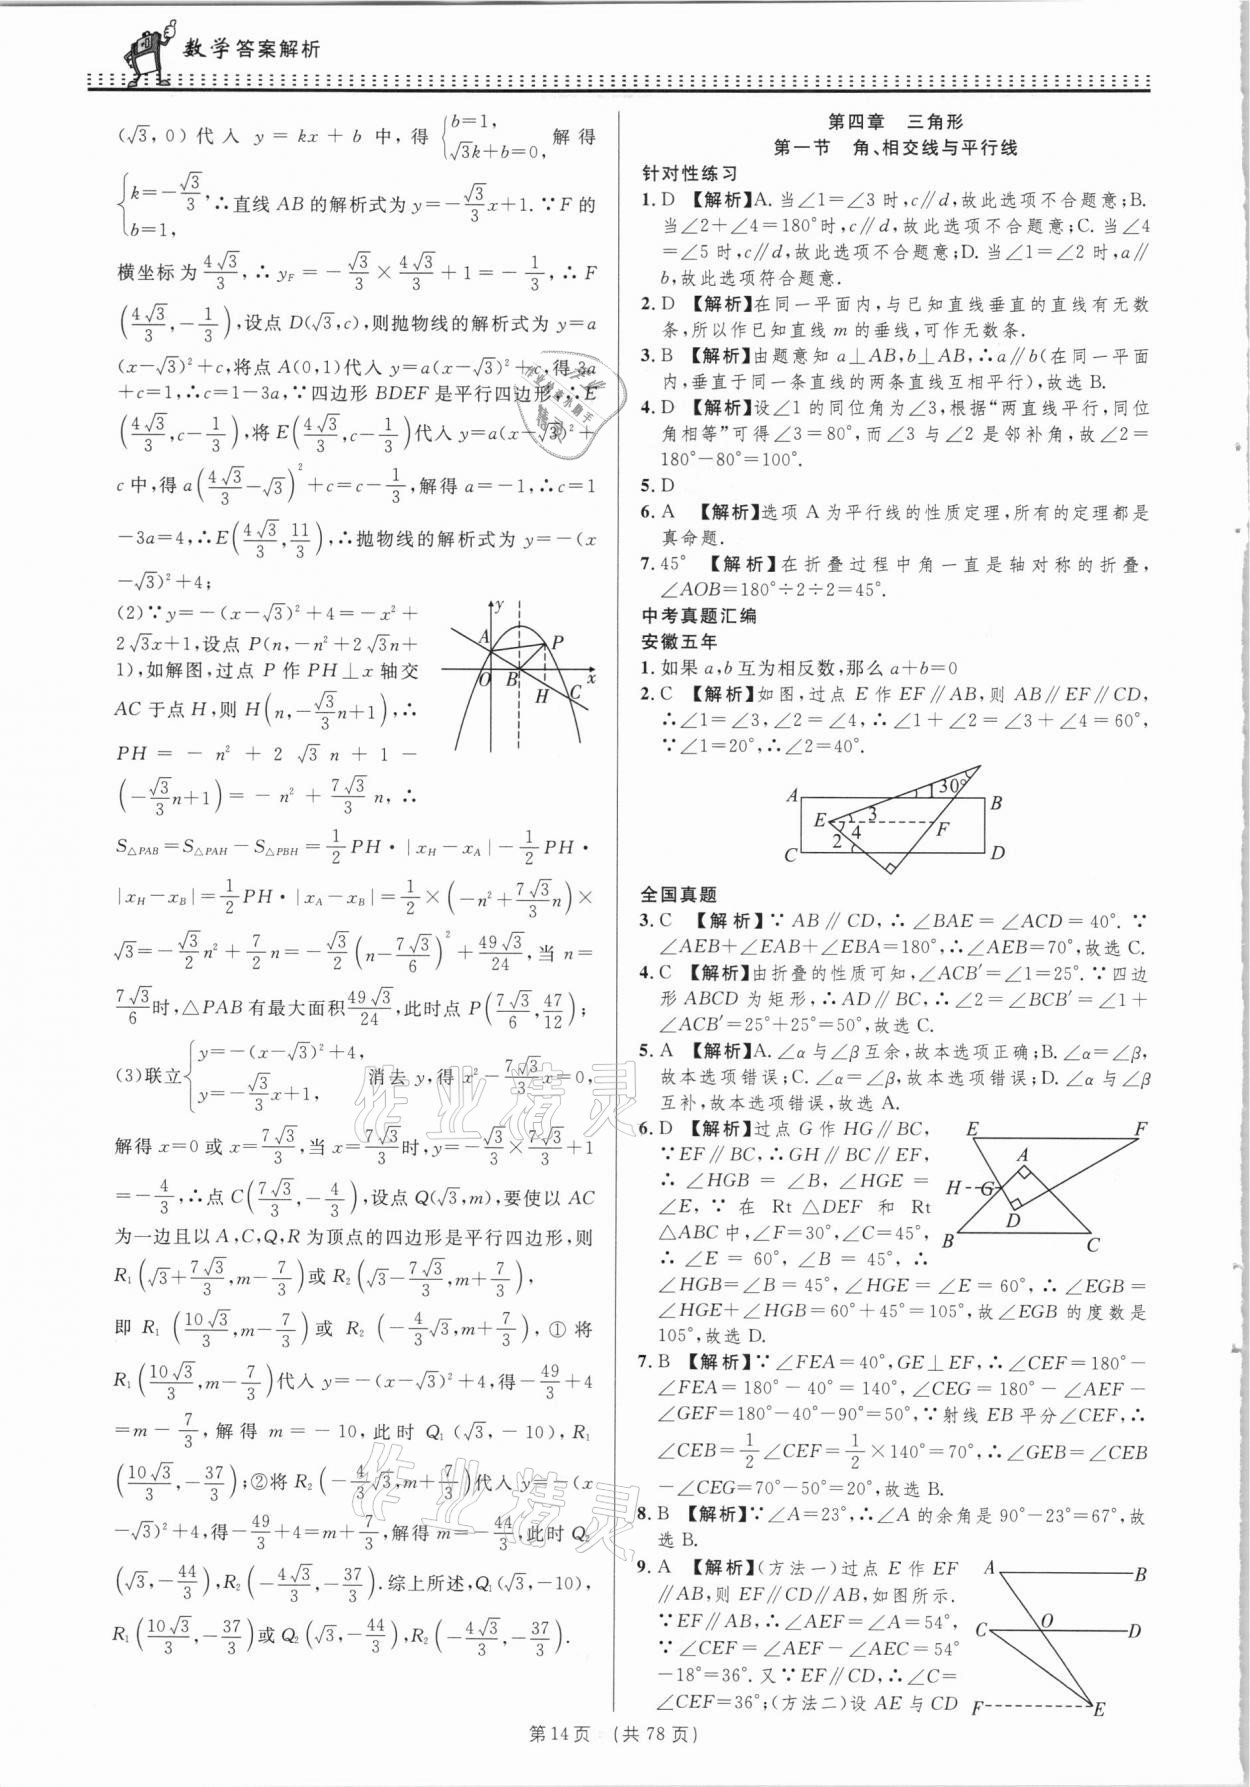 数学答案解析
(√3,0)代入 y=kx+b 中,得{b=1, √3k+b=0, 解得
{k=-√3/3, b=1, ∴直线 AB 的解析式为 y=-√3/3x+1.∵F 的
横坐标为4√3/3,∴y_F=-√3/3×4√3/3+1=-1/3,∴F
(4√3/3,-1/3),设点 D(√3,c),则抛物线的解析式为 y=a
(x-√3)²+c,将点 A(0,1)代入 y=a(x-√3)²+c,得3a
+c=1,∴c=1-3a,∵四边形 BDEF 是平行四边形,∵E
(4√3/3,c-1/3),将 E(4√3/3,c-1/3)代入 y=a(x-√3)²+
c 中,得 a(4√3/3-√3)²+c=c-1/3,解得 a=-1,∴c=1
-3a=4,∴E(4√3/3,11/3),∴抛物线的解析式为 y=-(x
-√3)²+4;
(2)∵y=-(x-√3)²+4=-x²+
2√3x+1,设点 P(n,-n²+2√3n+
1),如解图,过点 P 作 PH⊥x 轴交
AC 于点 H,则 H(n,-√3/3n+1),∴
PH=-n²+2√3n+1-
(-√3/3n+1)=-n²+7√3/3n,∴
y
A
P
O
B
H
C
x
S△PAB=S△PAH-S△PBH=1/2PH·|x_H-x_A|-1/2PH·
|x_H-x_B|=1/2PH·|x_A-x_B|=1/2×(-n²+7√3/3n)×
√3=-√3/2n²+7/2n=-√3/2(n-7√3/6)²+49√3/24,当 n=
7√3/6时,△PAB 有最大面积49√3/24,此时点 P(7√3/6,47/12);
(3)联立{y=-(x-√3)²+4, y=-√3/3x+1, 消去 y,得 x²-7√3/3x=0,
解得 x=0 或 x=7√3/3,当 x=7√3/3时,y=-√3/3×7√3/3+1
=-4/3,∴点 C(7√3/3,-4/3),设点 Q(√3,m),要使以 AC
为一边且以 A,C,Q,R 为顶点的四边形是平行四边形,则
R₁(√3+7√3/3,m-7/3)或 R₂(√3-7√3/3,m+7/3),
即 R₁(10√3/3,m-7/3)或 R₂(-4/3√3,m+7/3),①将
R₁(10√3/3,m-7/3)代入 y=-(x-√3)²+4,得-49/3+4
=m-7/3,解得 m=-10,此时 Q₁(√3,-10),R₁
(10√3/3,-37/3);②将 R₂(-4/3√3,m+7/3)代入 y=-(x
-√3)²+4,得-49/3+4=m+7/3,解得 m=-44/3,此时 Q₂
(√3,-44/3),R₂(-4√3/3,-37/3).综上所述,Q₁(√3,-10),
R₁(10√3/3,-37/3)或 Q₂(√3,-44/3),R₂(-4√3/3,-37/3).
第四章 三角形
第一节 角、相交线与平行线
针对性练习
1.D 【解析】A.当∠1=∠3时,c∥d,故此选项不合题意;B.
当∠2+∠4=180°时,c∥d,故此选项不合题意;C.当∠4
=∠5时,c∥d,故此选项不合题意;D.当∠1=∠2时,a∥
b,故此选项符合题意.
2.D 【解析】在同一平面内,与已知直线垂直的直线有无数
条,所以作已知直线 m 的垂线,可作无数条.
3.B 【解析】由题意知 a⊥AB,b⊥AB,∴a∥b(在同一平面
内,垂直于同一条直线的两条直线互相平行),故选 B.
4.D 【解析】设∠1的同位角为∠3,根据“两直线平行,同位
角相等”可得∠3=80°,而∠3与∠2是邻补角,故∠2=
180°-80°=100°.
5.D
6.A 【解析】选项 A 为平行线的性质定理,所有的定理都是
真命题.
7.45° 【解析】在折叠过程中角一直是轴对称的折叠,
∠AOB=180°÷2÷2=45°.
中考真题汇编
安徽五年
1.如果 a,b 互为相反数,那么 a+b=0
2.C 【解析】如图,过点 E 作 EF∥AB,则 AB∥EF∥CD,
∴∠1=∠3,∠2=∠4,∴∠1+∠2=∠3+∠4=60°,
∵∠1=20°,∴∠2=40°.
A
1
30°
B
E
3
F
2
4
C
D
全国真题
3.C 【解析】∵AB∥CD,∴∠BAE=∠ACD=40°.∵
∠AEB+∠EAB+∠EBA=180°,∴∠AEB=70°,故选 C.
4.C 【解析】由折叠的性质可知,∠ACB′=∠1=25°.∵四边
形 ABCD 为矩形,∴AD∥BC,∴∠2=∠BCB′=∠1+
∠ACB′=25°+25°=50°,故选 C.
5.A 【解析】A.∠α与∠β互余,故本选项正确;B.∠α=∠β,
故本选项错误;C.∠α=∠β,故本选项错误;D.∠α与∠β
互补,故本选项错误,故选 A.
6.D 【解析】过点 G 作 HG∥BC,
∵EF∥BC,∴GH∥BC∥EF,
∴∠HGB=∠B,∠HGE=
∠E,∵在 Rt△DEF 和 Rt
△ABC 中,∠F=30°,∠C=45°,
∴∠E=60°,∠B=45°,∴
∠HGB=∠B=45°,∠HGE=∠E=60°,∴∠EGB=
∠HGE+∠HGB=60°+45°=105°,故∠EGB 的度数是
105°,故选 D.
E
F
A
H
G
D
B
C
7.B 【解析】∵∠FEA=40°,GE⊥EF,∴∠CEF=180°-
∠FEA=180°-40°=140°,∠CEG=180°-∠AEF-
∠GEF=180°-40°-90°=50°,∵射线 EB 平分∠CEF,∴
∠CEB=1/2∠CEF=1/2×140°=70°,∴∠GEB=∠CEB
-∠CEG=70°-50°=20°,故选 B.
8.B 【解析】∵∠A=23°,∴∠A 的余角是90°-23°=67°,故
选 B.
9.A 【解析】(方法一)过点 E 作 EF
∥AB,则 EF∥CD∥AB,如图所示.
∵EF∥AB,∴∠AEF=∠A=54°,
∵∠CEF=∠AEF-∠AEC=54°
-18°=36°.又∵EF∥CD,∴∠C=
∠CEF=36°;(方法二)设 AE 与 CD
A
B
C
O
D
F
E
第14页 (共78页)
作业精灵
作业精灵